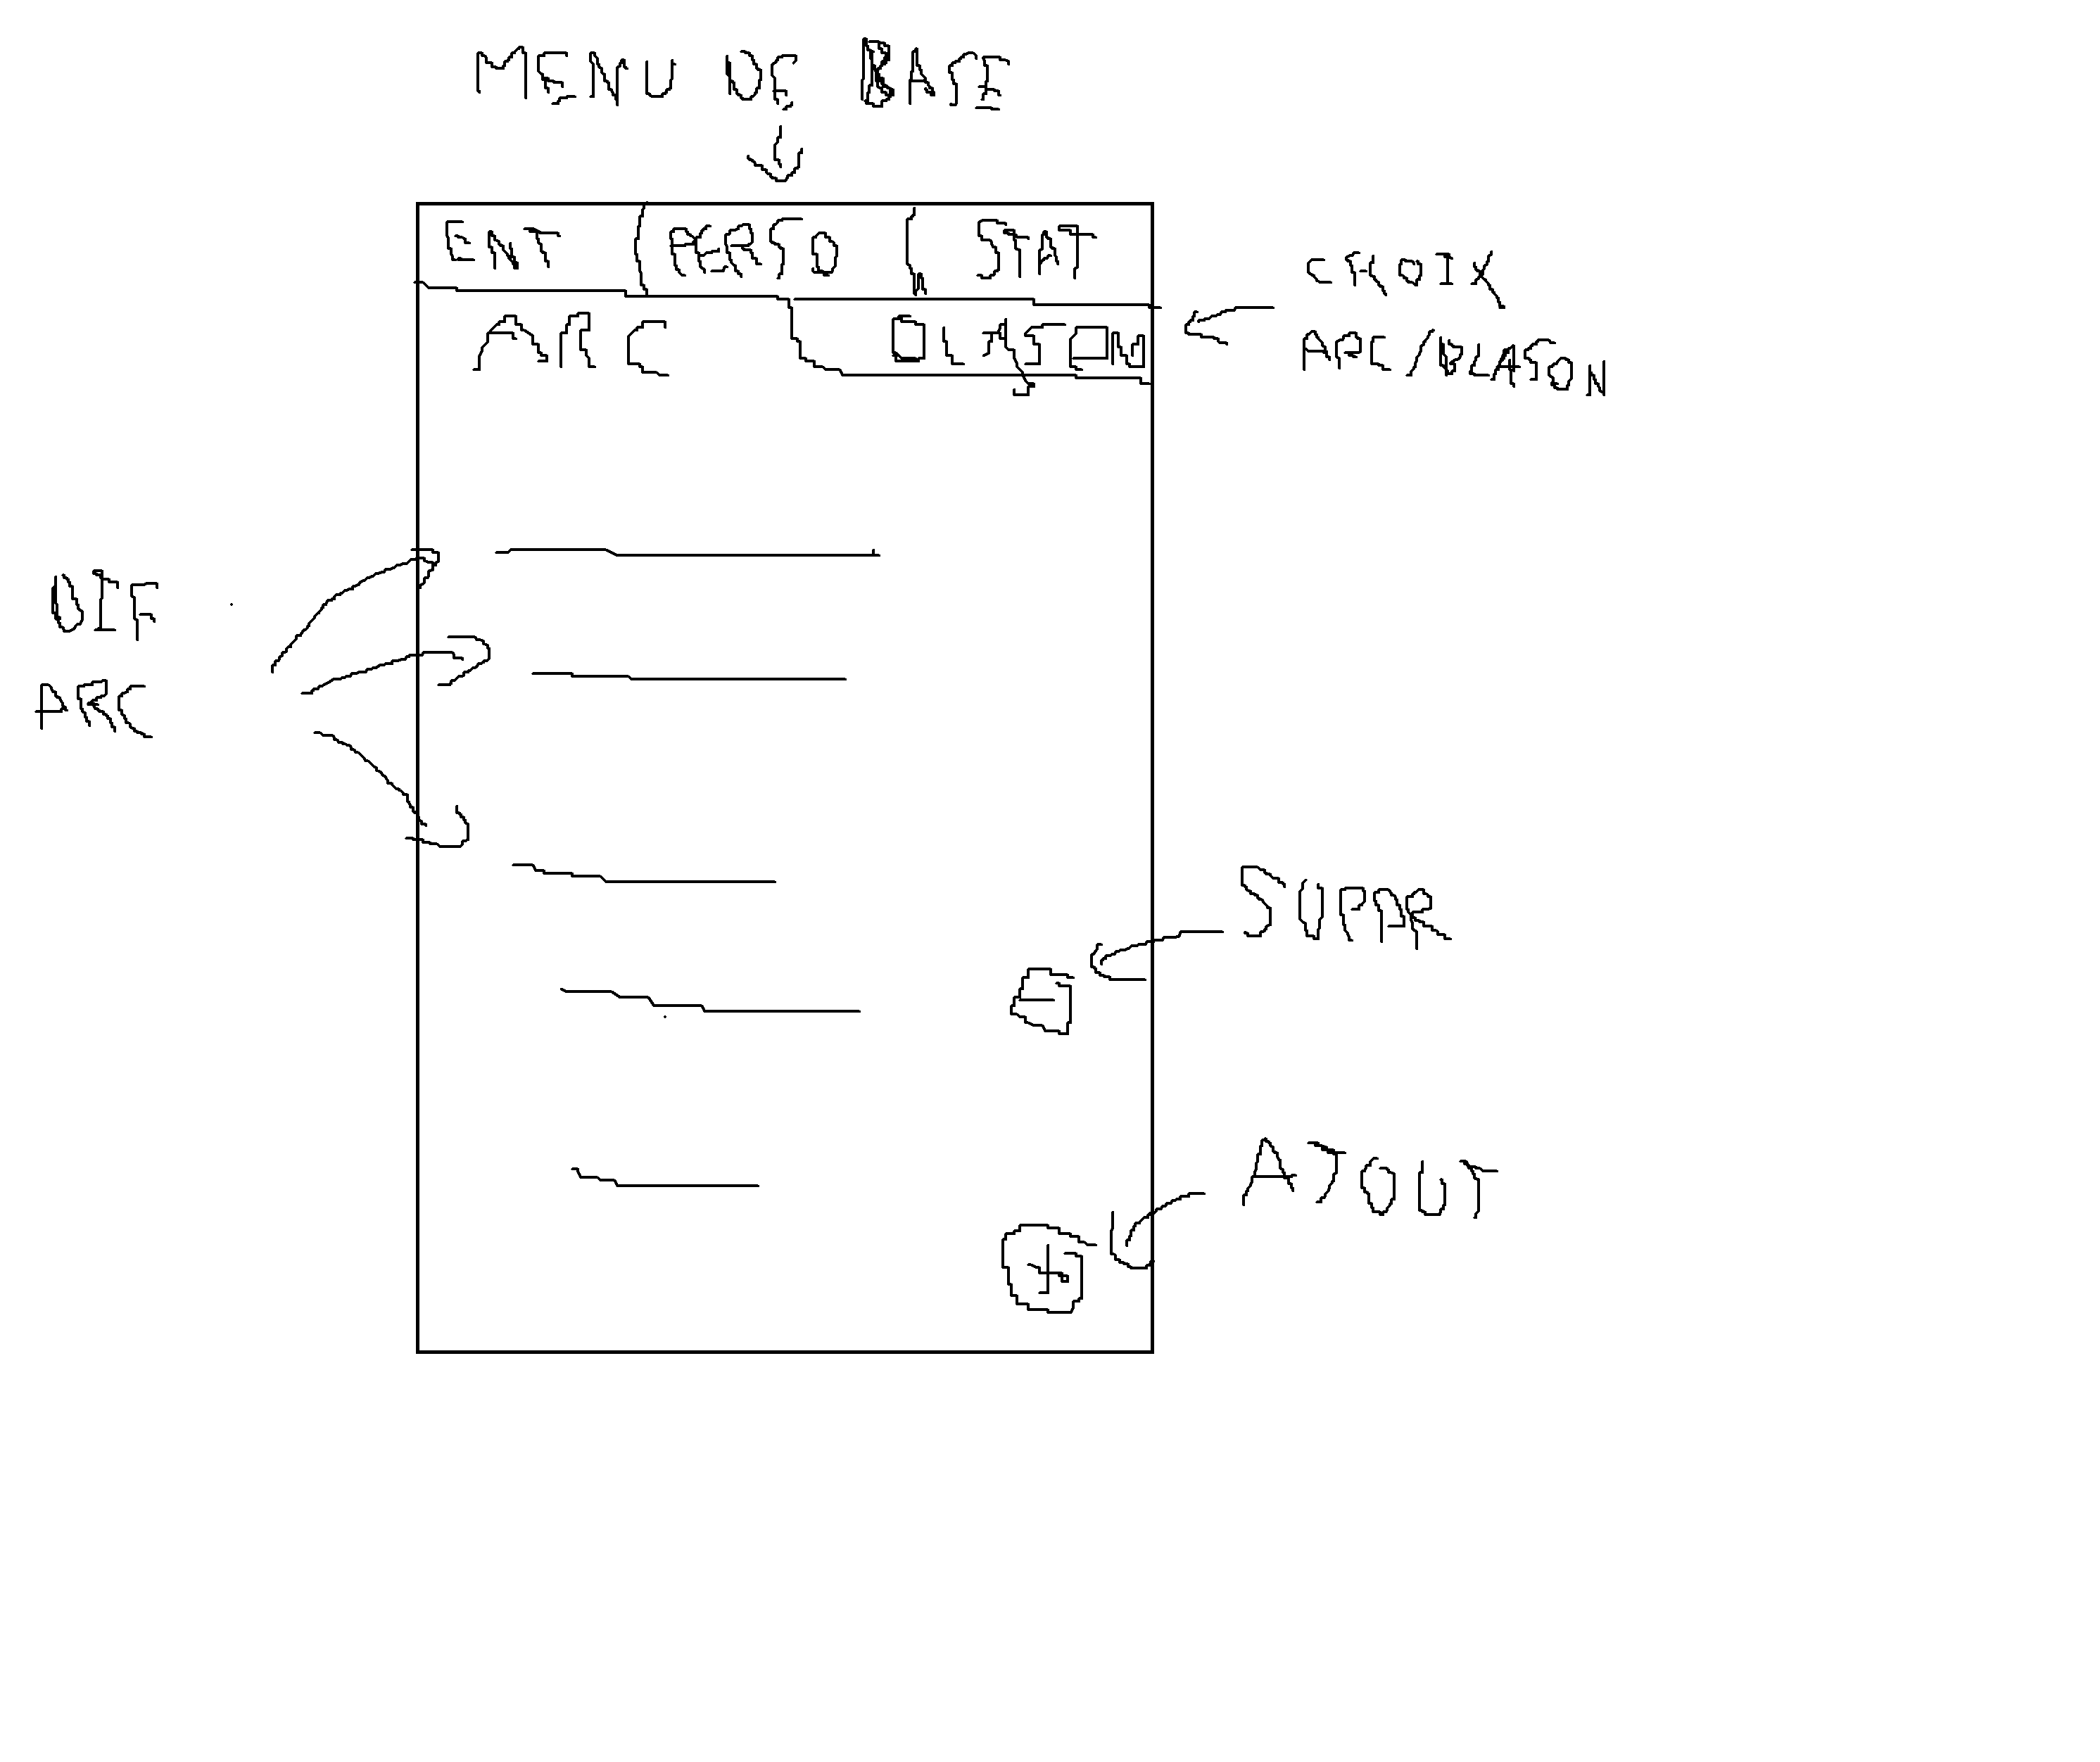 MENU DE BASE
ENT PERSO STAT
ARC BLASON
CROIX
ARC/BLASON
DIF
ARC
SUPAR
AJOUT